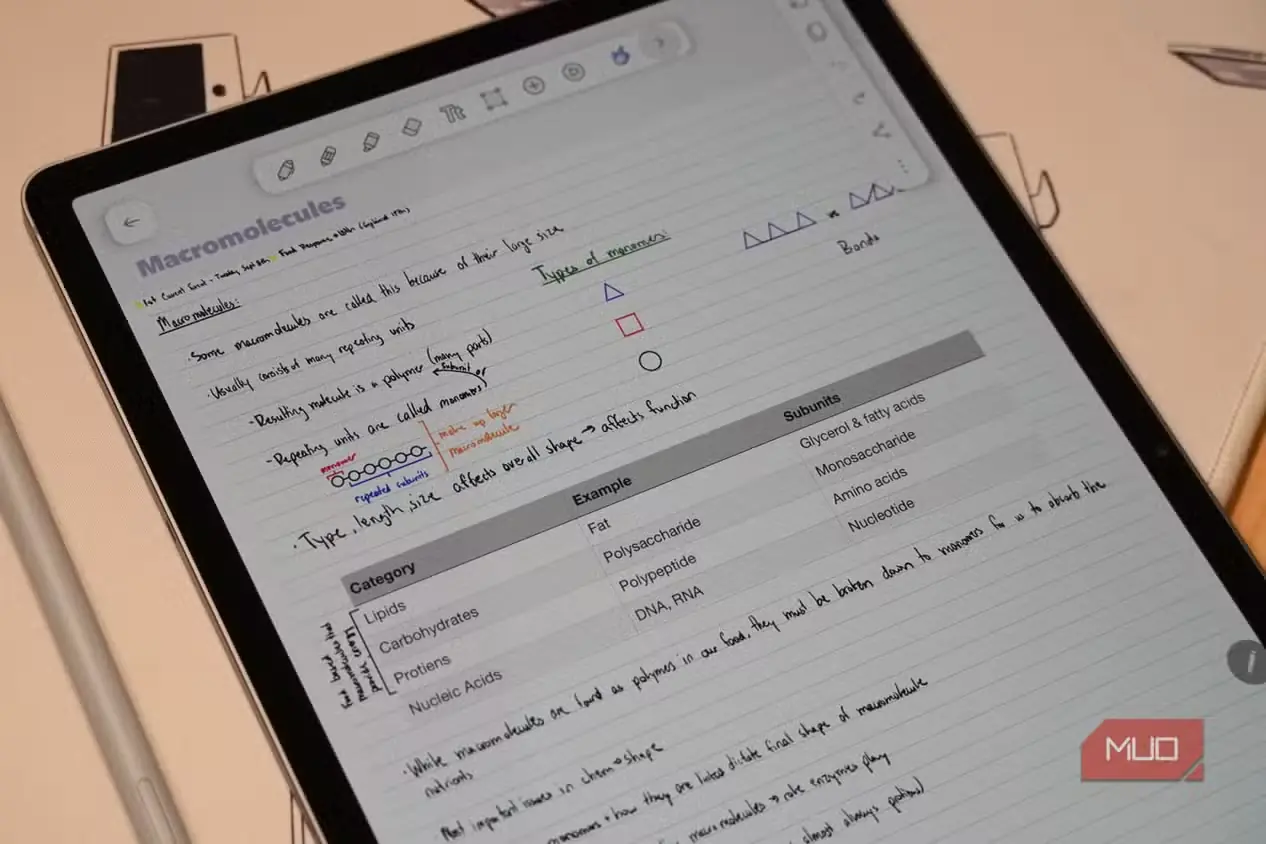 Macromolecules
Macromolecules:
·Some macromolecules are called this because of their large size
·Usually consists of many repeating units
-Resulting molecule is a polymer (many parts)
subunit or
-Repeating units are called monomers
monomer
repeated subunits
make up larger
macromolecule
Types of monomers:
vs
Bonds
·Type, length, size affects overall shape → affects function
Category Example Subunits
Lipids Fat Glycerol & fatty acids
Carbohydrates Polysaccharide Monosaccharide
Protiens Polypeptide Amino acids
Nucleic Acids DNA, RNA Nucleotide
·While macromolecules are found as polymers in our food, they must be broken down to monomers for us to absorb the
nutrients
important issues in chem → shape
monomers + how they are linked dictate final shape of macromolecule
macromolecules → role enzymes play
almost always
MUO